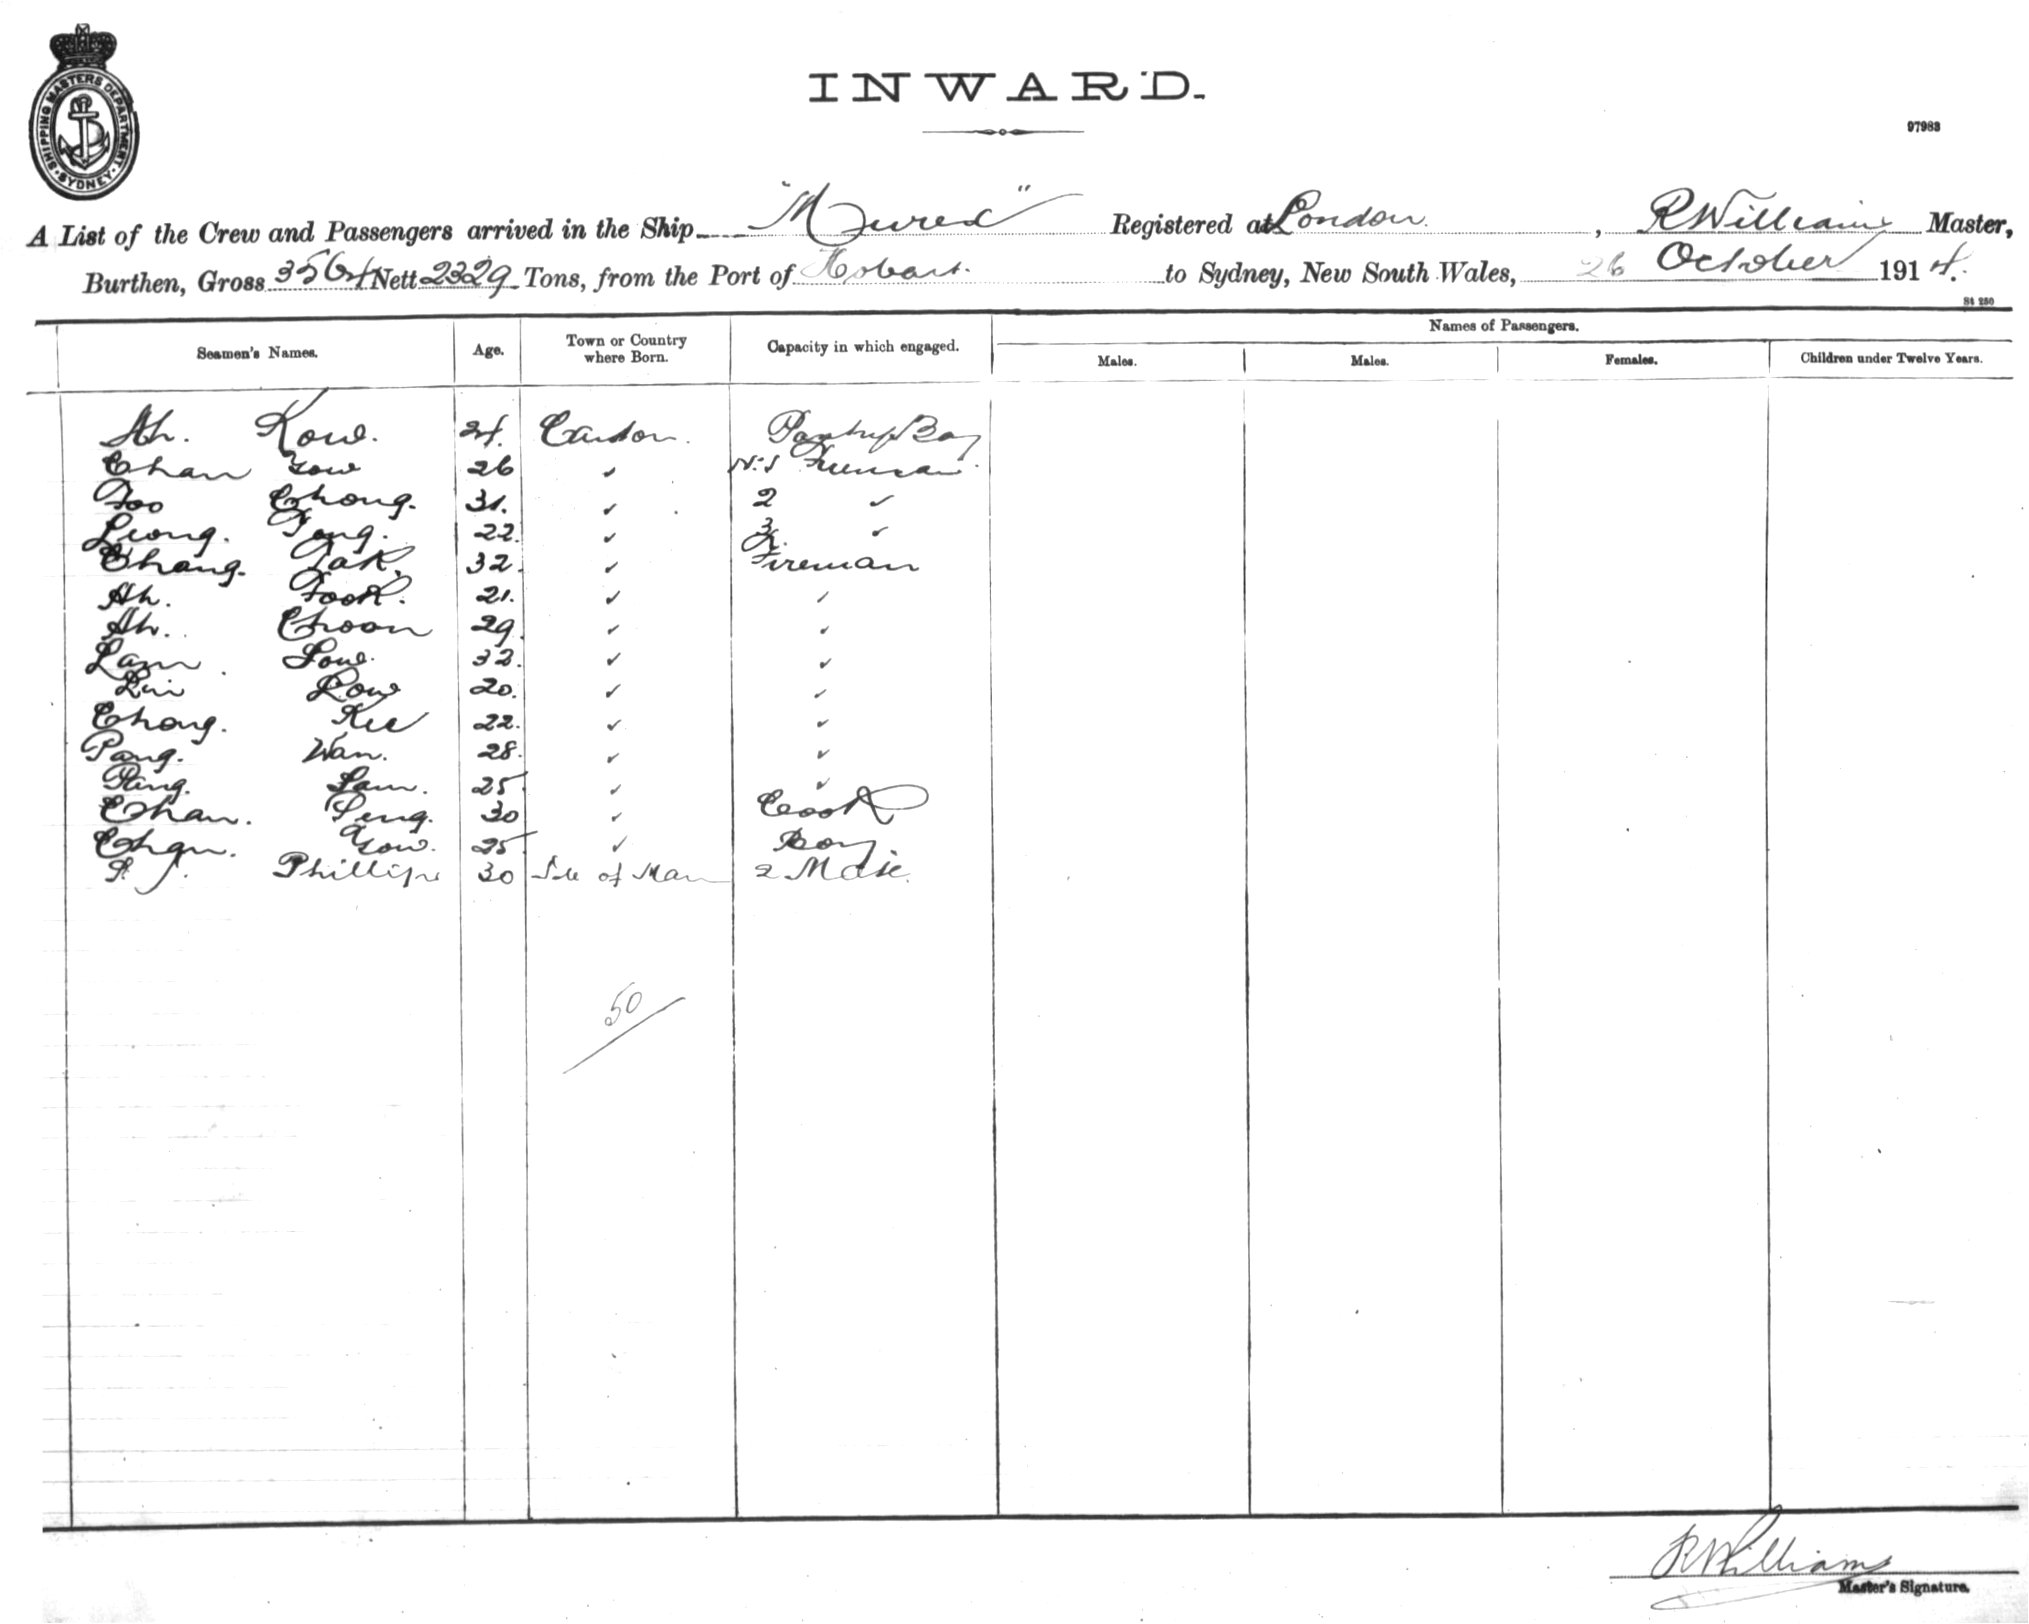 SHIPPING MASTERS DEPARTMENT · SYDNEY ·
INWARD.
97983
A List of the Crew and Passengers arrived in the Ship "Murex" Registered at London, R Williams Master,
Burthen, Gross 3564 Nett 2329 Tons, from the Port of Hobart. to Sydney, New South Wales, 26 October 1914.
St 250
Seamen's Names. Age. Town or Country where Born. Capacity in which engaged. Names of Passengers.
Males. Males. Females. Children under Twelve Years.
Ah. Kow. 24. Canton. Pantry Boy
Chan Yow 26 ✓ No. 1 Fireman
Foo Chong. 31. ✓ 2 ✓
Leong. Tong. 22. ✓ 3. ✓
Chang. Tak. 32. ✓ Fireman
Ah. Fook. 21. ✓ ✓
Ah. Choon 29. ✓ ✓
Lam. Sow. 32. ✓ ✓
Lui Pow 20. ✓ ✓
Chong. Kee 22. ✓ ✓
Pang. Wan. 28. ✓ ✓
Pang. Lam. 25 ✓ ✓
Chan. Seng. 30 ✓ Cook
Chan. Yow. 25 ✓ Boy
J. Phillips 30 Isle of Man 2 Mate.
50
R Williams
Master's Signature.